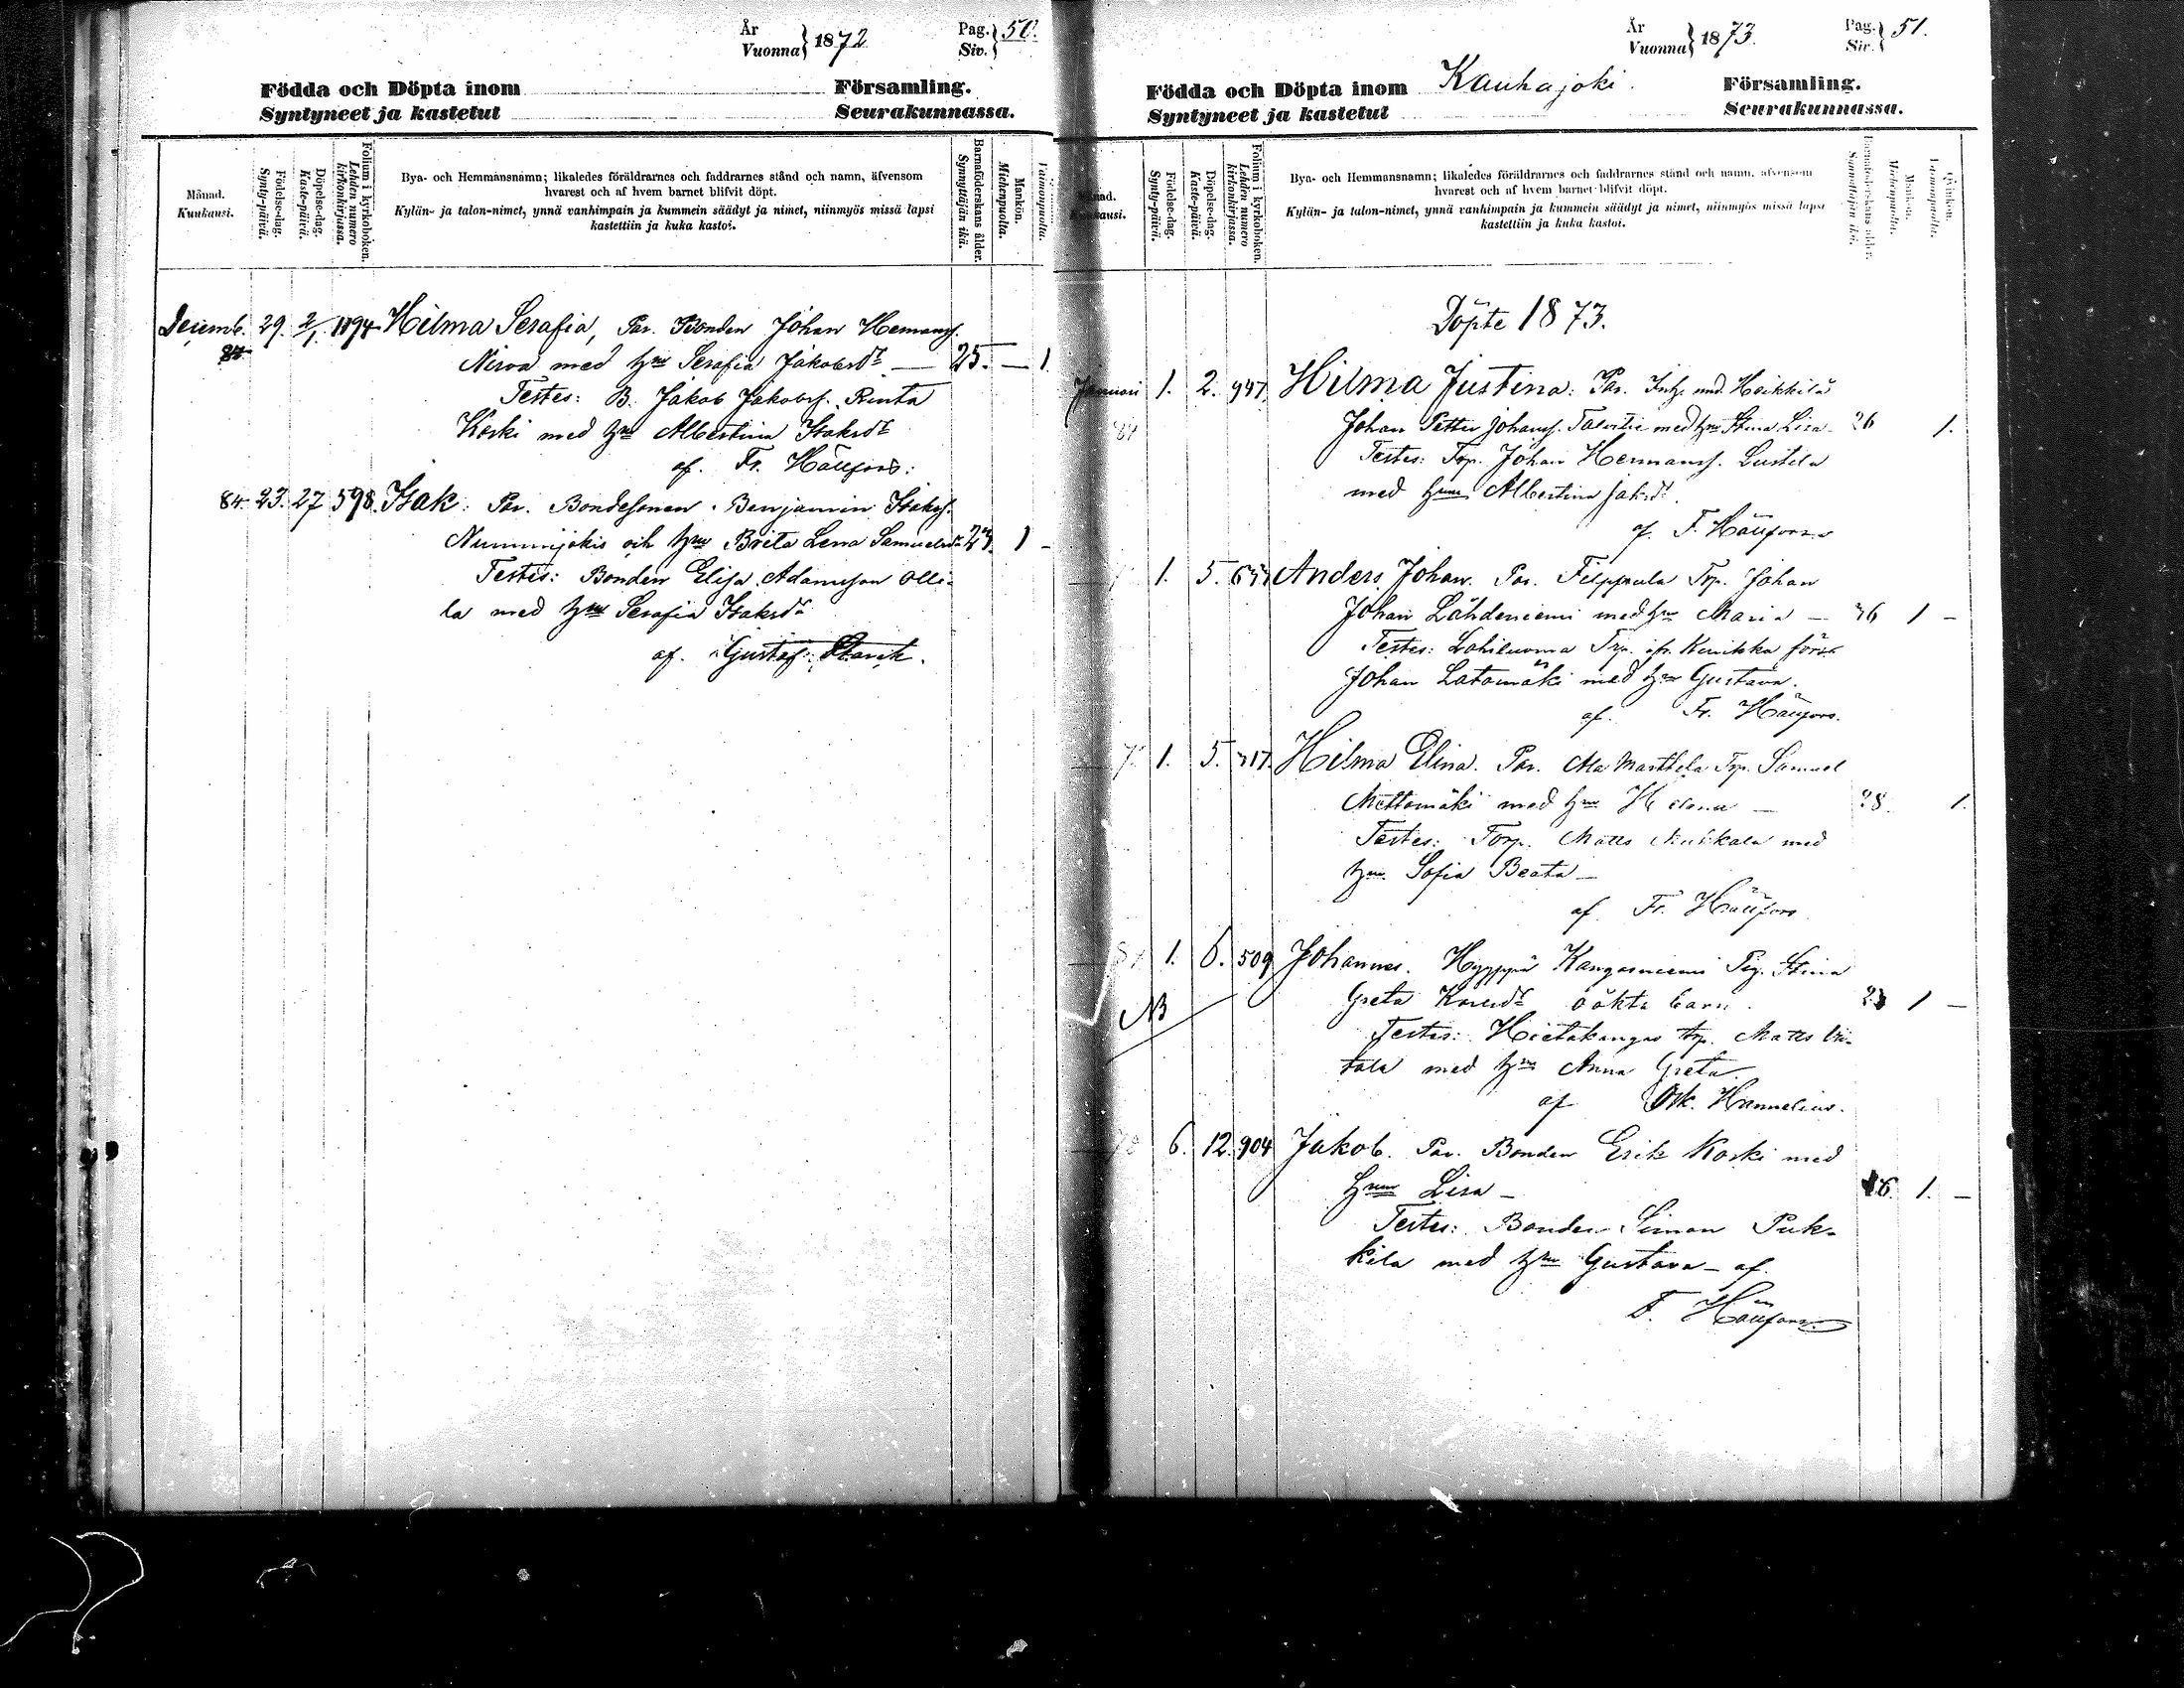 År
Vuonna} 1872
Pag.
Siv.} 50.
Födda och Döpta inom Församling.
Syntyneet ja kastetut Seurakunnassa.
Månad.
Kuukausi.
Födelse-dag.
Synty-päivä.
Döpelse-dag.
Kaste-päivä.
Folium i kyrkoboken.
Lehden numero
kirkonkirjassa.
Bya- och Hemmansnamn; likaledes föräldrarnes och faddrarnes stånd och namn, äfvensom
hvarest och af hvem barnet blifvit döpt.
Kylän- ja talon-nimet, ynnä vanhimpain ja kummein säädyt ja nimet, niinmyös missä lapsi
kastettiin ja kuka kastoi.
Barnaföderskans ålder.
Synnyttäjän ikä.
Mankön.
Miehenpuolta.
Vaimonpuolta.
Decemb. 29. 2/1. 1894 Hilma Serafia, Par. Bonden Johan Hermansf.
Nirva med hru Serafia Jakobsdr — 25. — 1.
Testes: B. Jakob Jakobsf. Renta
Koski med hru Albertina Isaksdr
af. Fr. Hällfors.
84. 23. 27 598. Isak: Par. Bondesonen Benjamin Isaksf.
Nummijokis och hru Brita Lena Samuelsdr 1 -
Testes: Bonden Elisa Adamsson Olli-
la med hru Serafia Isaksdr
af. Gustaf Starck.
År
Vuonna} 1873.
Pag.
Siv.} 51.
Födda och Döpta inom Kauhajoki. Församling.
Syntyneet ja kastetut Seurakunnassa.
Månad.
Kuukausi.
Födelse-dag.
Synty-päivä.
Döpelse-dag.
Kaste-päivä.
Folium i kyrkoboken.
Lehden numero
kirkonkirjassa.
Bya- och Hemmansnamn; likaledes föräldrarnes och faddrarnes stånd och namn, äfvensom
hvarest och af hvem barnet blifvit döpt.
Kylän- ja talon-nimet, ynnä vanhimpain ja kummein säädyt ja nimet, niinmyös missä lapsi
kastettiin ja kuka kastoi.
Barnaföderskans ålder.
Synnyttäjän ikä.
Mankön.
Miehenpuolta.
Qvinkön.
Vaimonpuolta.
Döpte 1873.
Januari 1. 2. 947. Hilma Justina: Par. Inh. und. Heikkilä
Johan Petter Johansf. med hru Stina Lisa - 26 1.
Testes: Trp. Johan Hermansf. Lustila
med hru Albertina Jaksdr.
af. F. Hällfors
1. 5. Anders Johan. Par. Filppula Trp. Johan
Johan Lähdeniemi med hru Maria — 1 -
Testes: Lohiluoma Trp.
Johan Latomäki med hru Gustava.
af. Fr. Hällfors.
1. 5. 717. Hilma Elina. Par. Ala Marttila Trp. Samuel
Mettomäki med hru Helena — 28. 1.
Testes: Torp. Matts med
hru Sofia Beata —
af Fr. Hällfors
1. 6. 509 Johannes. Hyyppä Kangasniemi Pig. Stina
NB Greta oäkta barn. 1 —
Testes: Hietakangas trp. Matts Vii-
tala med hru Anna Greta
af Osk. Hannelius.
6. 12. 904 Jakob. Par. Bonden Erik Koski med
hru Lisa — 1. —
Testes: Bonden Simon Puk-
kila med hru Gustava — af
F. Hällfors